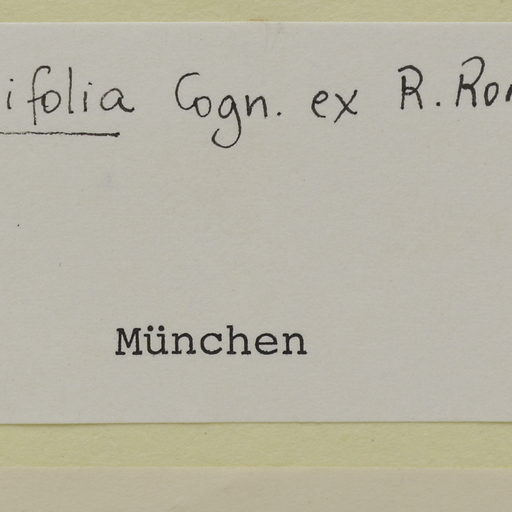 ifolia Cogn. ex R. Ron
München